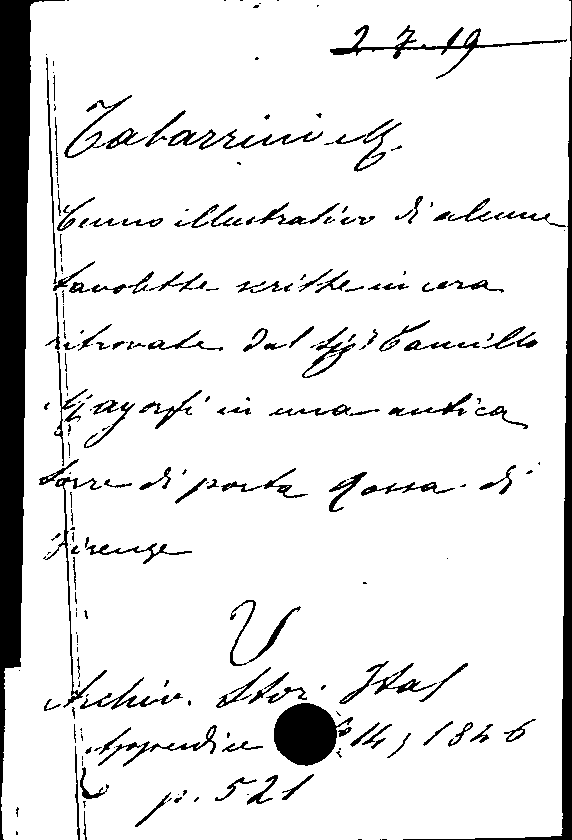 2.7.19
Tabarrini M.
Cenno illustrativo di alcune
tavolette scritte in cera
ritrovate dal Sigr Camillo
Majorfi in una antica
torre di porta Rossa di
Firenze
V
Archiv. Stor. Ital
Appendice 14, 1846
p. 521